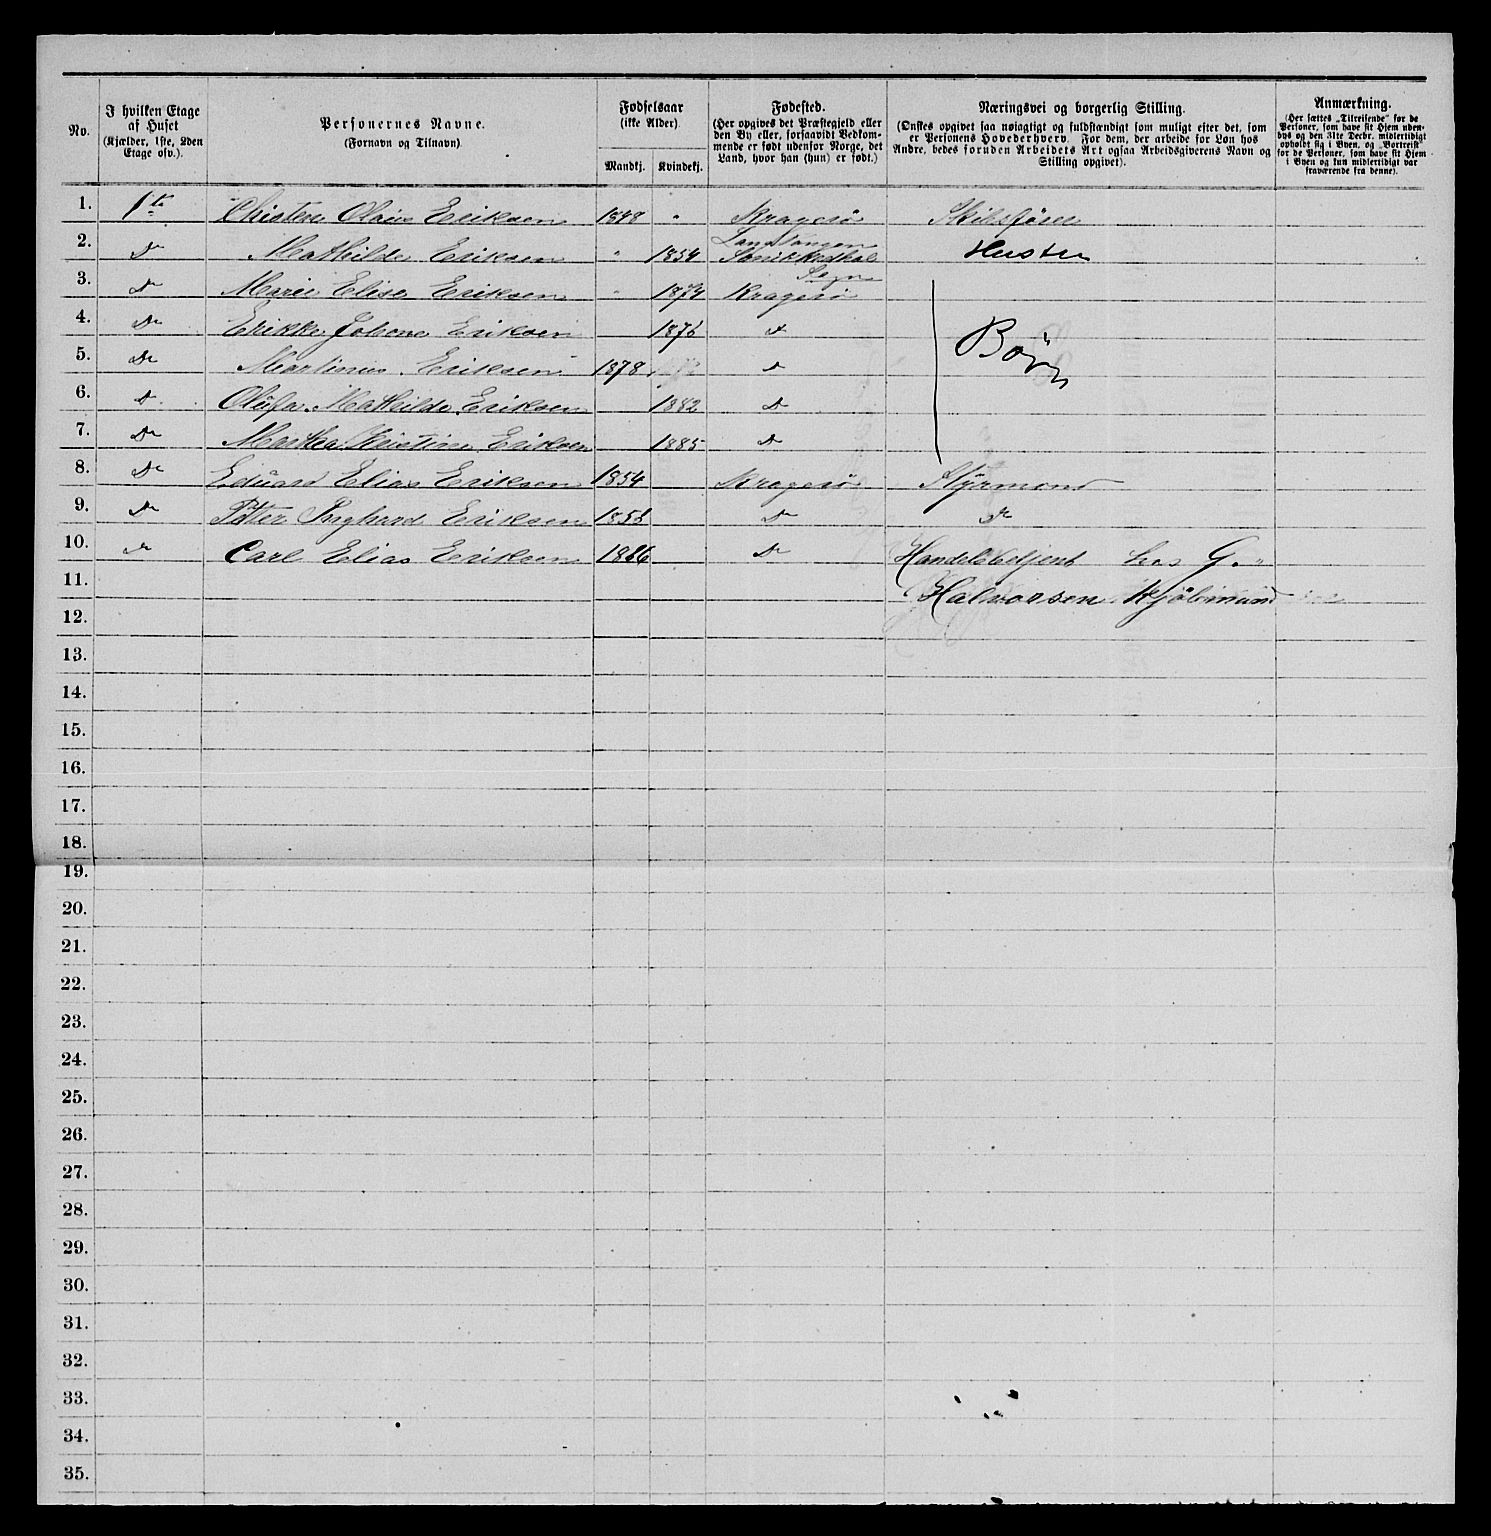 No.
I hvilken Etage af Huset
(Kjælder, 1ste, 2den Etage osv.).
Personernes Navne.
(Fornavn og Tilnavn).
Fødselsaar
(ikke Alder).
Mandkj.
Kvindekj.
Fødested.
(Her opgives det Præstegjeld eller
den By eller, forsaavidt Vedkom-
mende er født udenfor Norge, det
Land, hvor han (hun) er født.)
Næringsvei og borgerlig Stilling.
(Ønskes opgivet saa nøiagtigt og fuldstændigt som muligt efter det, som
er Personens Hovederhverv. For dem, der arbeide for Løn hos
Andre, bedes foruden Arbeidets Art ogsaa Arbeidsgiverens Navn og
Stilling opgivet).
Anmærkning.
(Her sættes „Tilreisende“ for de
Personer, som have sit Hjem uden-
bys og den 31te Decbr. midlertidigt
opholdt sig i Byen, og „Bortreist“
for de Personer, som have sit Hjem
i Byen og kun midlertidigt var
fraværende fra denne).
1. 1te Christen Olaus Eriksen 1848 " Kragerø Skibsfører
2. Do Mathilde Eriksen " 1854 Hustru
3. Do Marie Elise Eriksen " 1874 Kragerø
4. Do Erikke Johane Eriksen 1876 Do Børn
5. Do Martinus Eriksen 1878 Do
6. Do Olufa Mathilde Eriksen 1882 Do
7. Do Marthea Kristine Eriksen 1885 Do
8. Do Eduard Elias Eriksen 1854 Kragerø Styrmand
9. Do Petter Eriksen 1856 Do Do
10. Do Carl Elias Eriksen 1866 Do Handelsbetjent hos G.
11. Halvorsen Kjøbmand
12.
13.
14.
15.
16.
17.
18.
19.
20.
21.
22.
23.
24.
25.
26.
27.
28.
29.
30.
31.
32.
33.
34.
35.